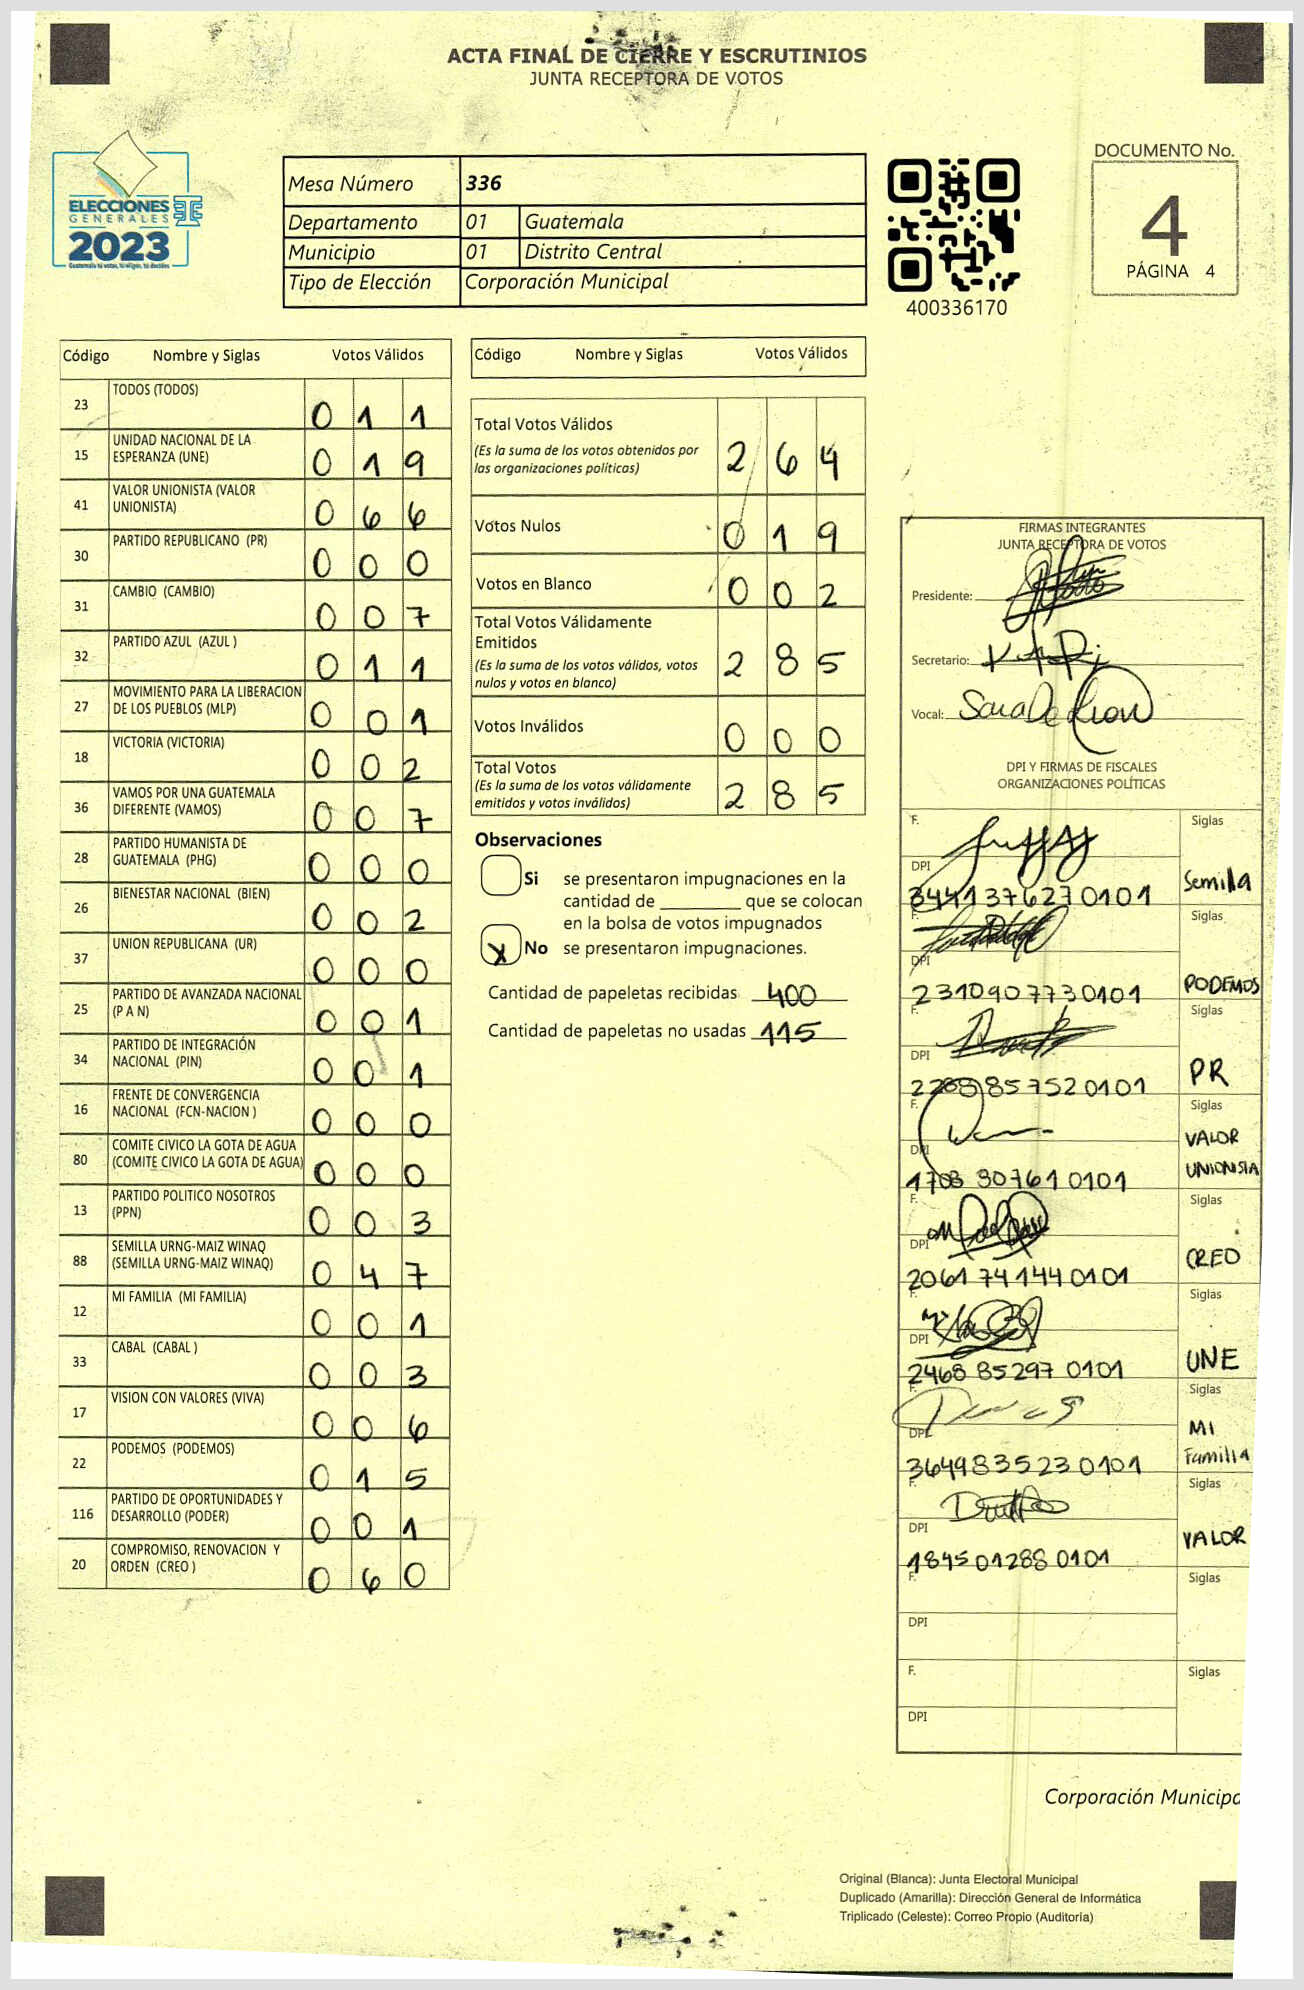 ACTA FINAL DE CIERRE Y ESCRUTINIOS
JUNTA RECEPTORA DE VOTOS
ELECCIONES
GENERALES
2023
Guatemala tú votas, tú eliges, tú decides
Mesa Número 336
Departamento 01 Guatemala
Municipio 01 Distrito Central
Tipo de Elección Corporación Municipal
400336170
DOCUMENTO No.
4
PÁGINA 4
Código Nombre y Siglas Votos Válidos
23 TODOS (TODOS) 0 1 1
15 UNIDAD NACIONAL DE LA ESPERANZA (UNE) 0 1 9
41 VALOR UNIONISTA (VALOR UNIONISTA) 0 6 6
30 PARTIDO REPUBLICANO (PR) 0 0 0
31 CAMBIO (CAMBIO) 0 0 7
32 PARTIDO AZUL (AZUL ) 0 1 1
27 MOVIMIENTO PARA LA LIBERACION DE LOS PUEBLOS (MLP) 0 0 1
18 VICTORIA (VICTORIA) 0 0 2
36 VAMOS POR UNA GUATEMALA DIFERENTE (VAMOS) 0 0 7
28 PARTIDO HUMANISTA DE GUATEMALA (PHG) 0 0 0
26 BIENESTAR NACIONAL (BIEN) 0 0 2
37 UNION REPUBLICANA (UR) 0 0 0
25 PARTIDO DE AVANZADA NACIONAL (P A N) 0 0 1
34 PARTIDO DE INTEGRACIÓN NACIONAL (PIN) 0 0 1
16 FRENTE DE CONVERGENCIA NACIONAL (FCN-NACION ) 0 0 0
80 COMITE CIVICO LA GOTA DE AGUA (COMITE CIVICO LA GOTA DE AGUA) 0 0 0
13 PARTIDO POLITICO NOSOTROS (PPN) 0 0 3
88 SEMILLA URNG-MAIZ WINAQ (SEMILLA URNG-MAIZ WINAQ) 0 4 7
12 MI FAMILIA (MI FAMILIA) 0 0 1
33 CABAL (CABAL ) 0 0 3
17 VISION CON VALORES (VIVA) 0 0 6
22 PODEMOS (PODEMOS) 0 1 5
116 PARTIDO DE OPORTUNIDADES Y DESARROLLO (PODER) 0 0 1
20 COMPROMISO, RENOVACION Y ORDEN (CREO ) 0 6 0
Código Nombre y Siglas Votos Válidos
Total Votos Válidos
(Es la suma de los votos obtenidos por
las organizaciones políticas) 2 6 4
Votos Nulos 0 1 9
Votos en Blanco 0 0 2
Total Votos Válidamente
Emitidos
(Es la suma de los votos válidos, votos
nulos y votos en blanco) 2 8 5
Votos Inválidos 0 0 0
Total Votos
(Es la suma de los votos válidamente
emitidos y votos inválidos) 2 8 5
Observaciones
Si se presentaron impugnaciones en la
cantidad de ________ que se colocan
en la bolsa de votos impugnados
X No se presentaron impugnaciones.
Cantidad de papeletas recibidas 400
Cantidad de papeletas no usadas 115
FIRMAS INTEGRANTES
JUNTA RECEPTORA DE VOTOS
Presidente:
Secretario:
Vocal: Sara De Leon
DPI Y FIRMAS DE FISCALES
ORGANIZACIONES POLÍTICAS
F. Siglas
DPI 3441376270101 Semilla
F. Siglas
DPI 2310907730101 PODEMOS
F. Siglas
DPI 2288857520101 PR
F. Siglas
DPI 1708807610101 VALOR UNIONISIA
F. Siglas
DPI 2061741440101 CREO
F. Siglas
DPI 2468852970101 UNE
F. Siglas
DPI 3649835230101 MI Familia
F. Siglas
DPI 1845012880101 VALOR
F. Siglas
DPI
F. Siglas
DPI
Corporación Municipa
Original (Blanca): Junta Electoral Municipal
Duplicado (Amarilla): Dirección General de Informática
Triplicado (Celeste): Correo Propio (Auditoría)